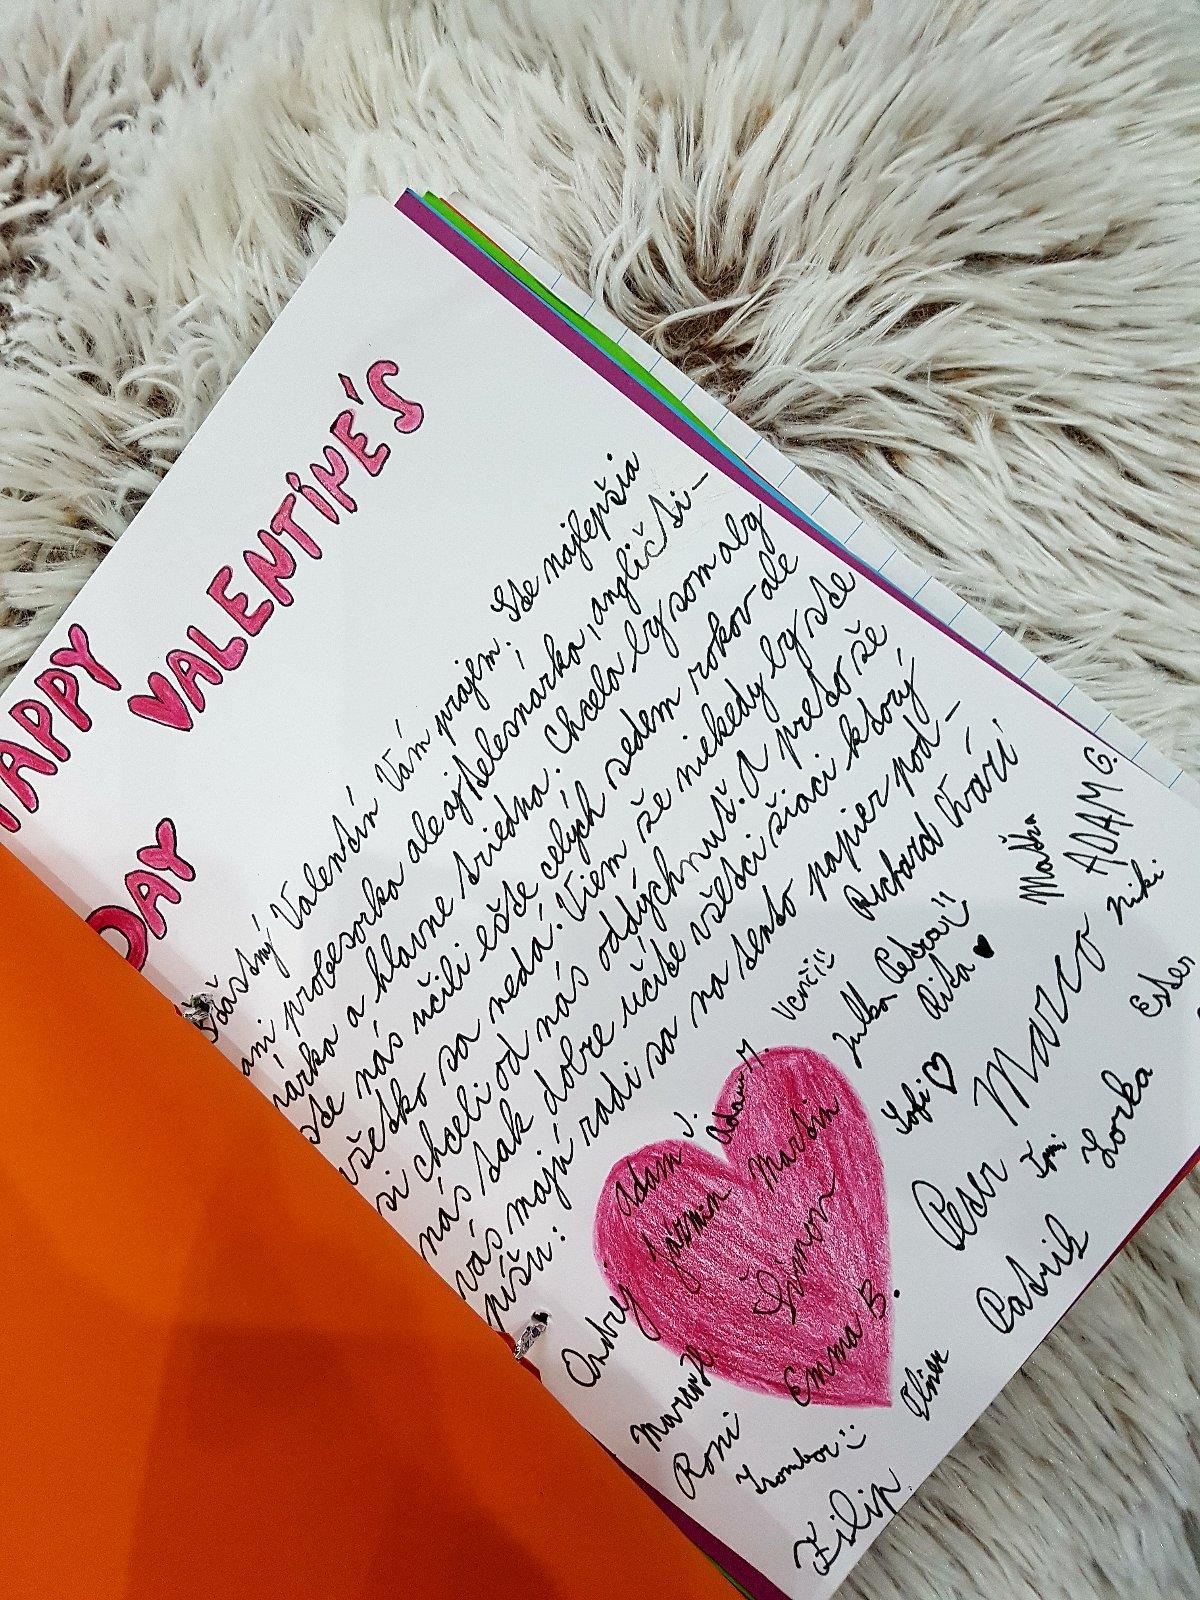 HAPPY
VALENTINE'S
DAY
Šťastný Valentín Vám prajem! Ste najlepšia
ani profesorka ale aj telesnarka, angličti-
nárka a hlavne triedna. Chcela by som aby
ste nás učili ešte celých sedem rokov ale
všetko sa nedá. Viem že niekedy by ste
si chceli od nás oddýchnuť. A preto že
nás tak dobre učíte všetci žiaci ktorý
vás majú radi sa na tento papier pod-
píšu:
Richard
Maťka
ADAM G.
Niki
Ester
Julka
Rita ♥
Marco
Sofi ♡
Zorka
Peter
Patrik
Adam J.
Adam M.
Jázmin
Martin
Šimon
Ondrej
Emma B.
Roni
Oliver
Filip